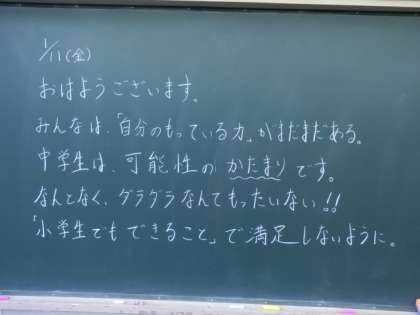 1/11(金)
おはようございます。
みんなは、「自分のもっている力」がまだまだある。
中学生は、可能性のかたまりです。
なんとなく、グラグラなんてもったいない!!
「小学生でもできること」で満足しないように。